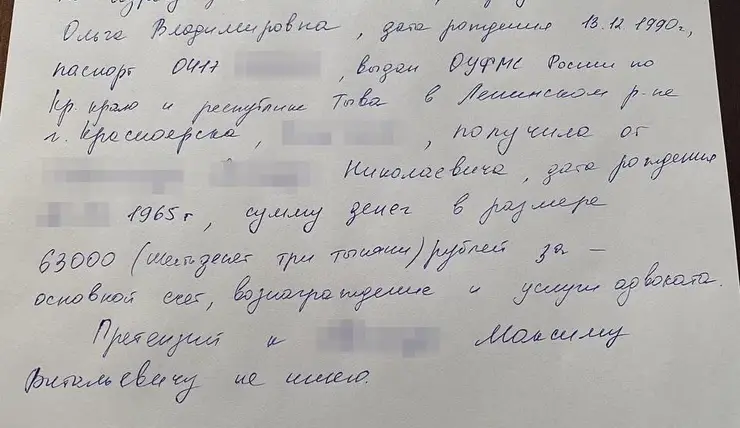 Ольга Владимировна, дата рождения 13.12.1990г,
паспорт 0417 , выдан ОУФМС Росии по
Кр. краю и республике Тыва в Ленинском р-не
г. Красноярска, , получила от
Николаевича, дата рождения
1965г, сумму денег в размере
63000 (шестьдесят три тысячи) рублей за —
основной счет, вознаграждение и услуги адвоката.
Претензий к Максиму
Витальевичу не имею.